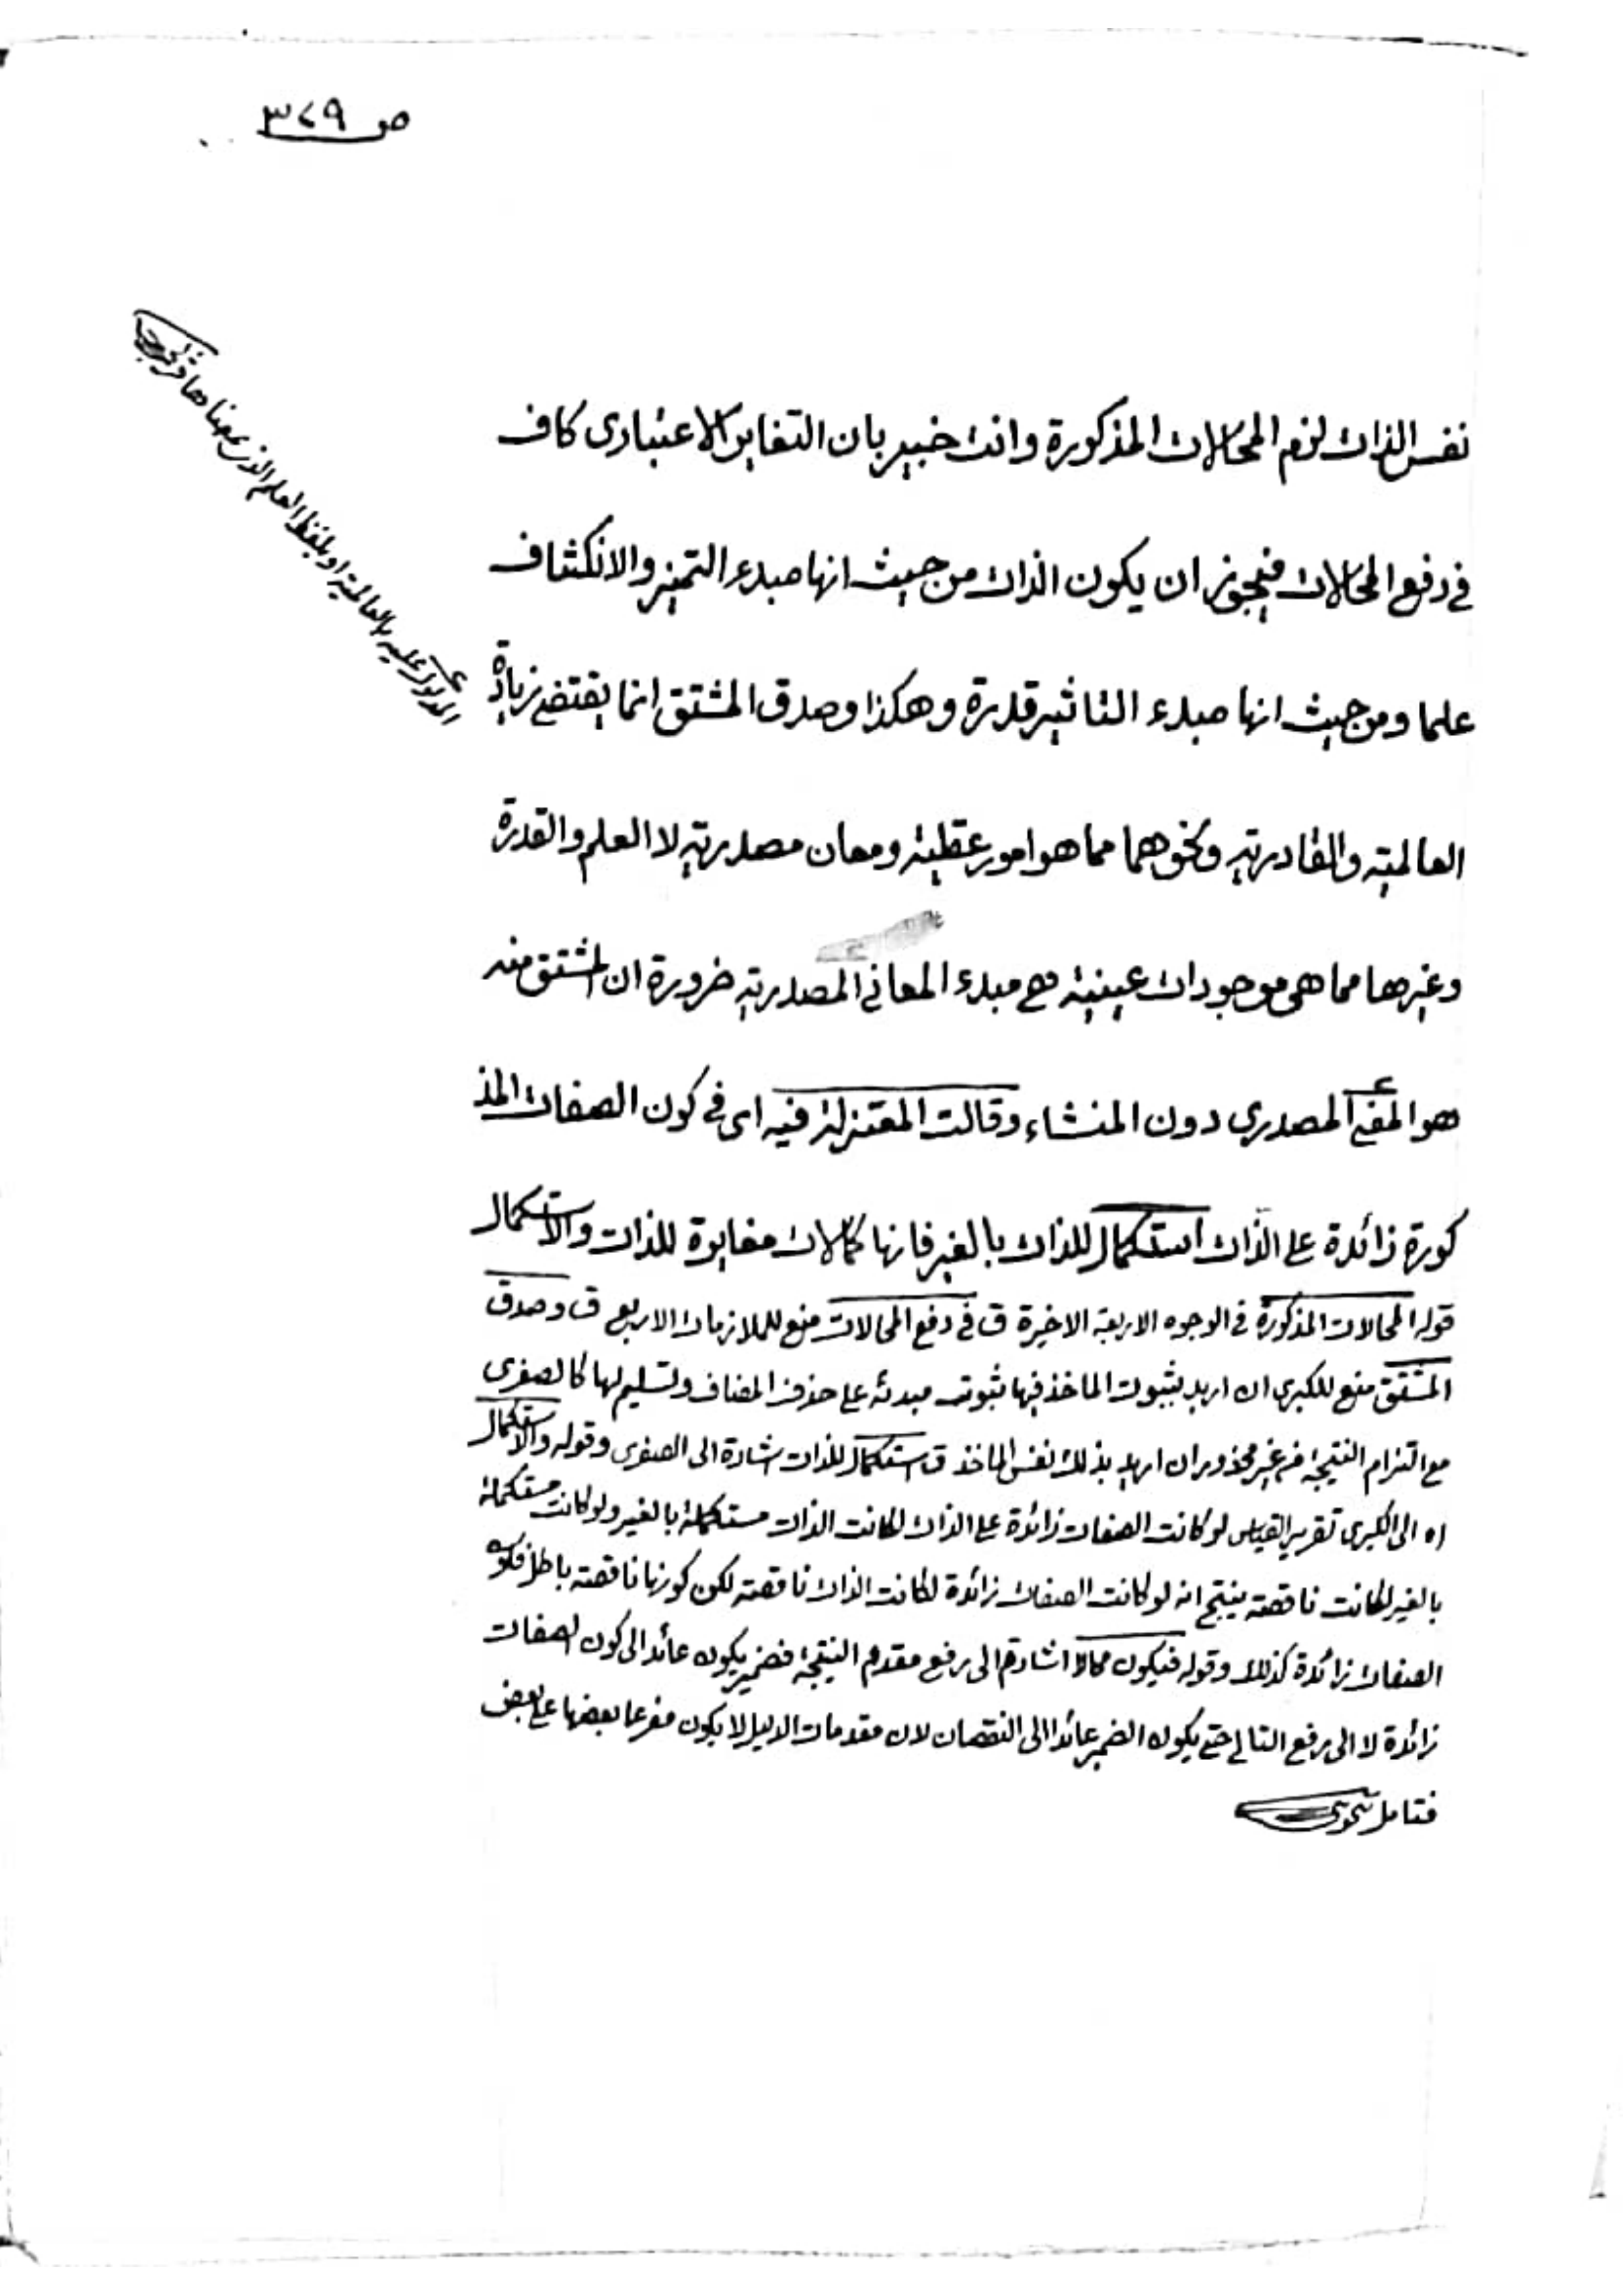 ص ٣٤٩
نفس الذات لزم المحالات المذكورة وانت خبير بان التغاير الاعتبارى كاف
فى دفع المحالات فيجوز ان يكون الذات من حيث انها مبدء التميز والانكشاف
علما ومن حيث انها مبدء التاثير قدرة وهكذا وصدق المشتق انما يقتضى زيادة
العالمية والقادرية ونحوهما مما هو امور عقلية ومعان مصدرية لا العلم والقدرة
وغيرها مما هى موجودات عينية هى مبدء المعانى المصدرية ضرورة ان المشتق منه
هو المعنى المصدرى دون المنشاء وقالت المعتزلة فيه اى فى كون الصفات المذ
كورة زائدة على الذات استكمال للذات بالغير فانها كمالات مغايرة للذات والاستكمال
قوله المحالات المذكورة فى الوجوه الاربعة الاخيرة ق فى دفع المحالات منع للملازمات الاربع ق وصدق
المشتق منع للكبرى ان اريد بثبوت الماخذ فيها ثبوت مبدئه على حذف المضاف وتسليم لها كالصغرى
مع التزام النتيجة فى غير محذور ان اريد بذلك نفس الماخذ ق استكمال للذات اشارة الى الصغرى وقوله والاستكمال
اه الى الكبرى تقرير القياس لو كانت الصفات زائدة على الذات لكانت الذات مستكملة بالغير ولو كانت مستكملة
بالغير لكانت ناقصة ينتج انه لو كانت الصفات زائدة لكانت الذات ناقصة لكن كونها ناقصة باطل فكون
الصفات زائدة كذلك وقوله فيكون محالا اشارة الى رفع مقدم النتيجة فضمير يكون عائد الى كون الصفات
زائدة لا الى رفع التالى حتى يكون الضمير عائدا الى النقصان لان مقدمات الدليل لا يكون مفرعا بعضها على بعض
فتامل
المدلول عليه بالعالمية او بلفظ العلم الذى معناه